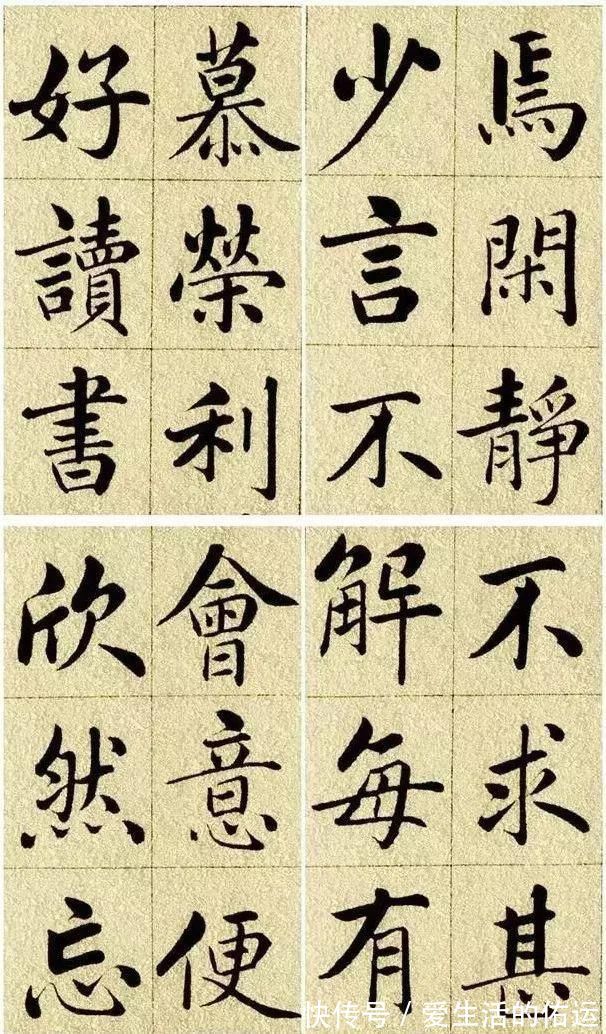 焉閑靜
少言不
慕榮利
好讀書
不求甚
解每有
會意便
欣然忘
快传号 / 爱生活的佑运